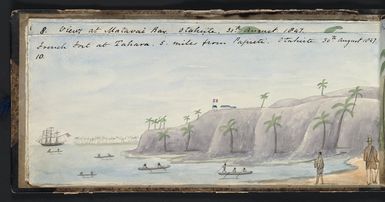 8. View at Matavai Bay. Otaheite. 30th August 1847.
French Fort at Tahara. 5. miles from Papeete. Otaheite 30th August 1847.
10.